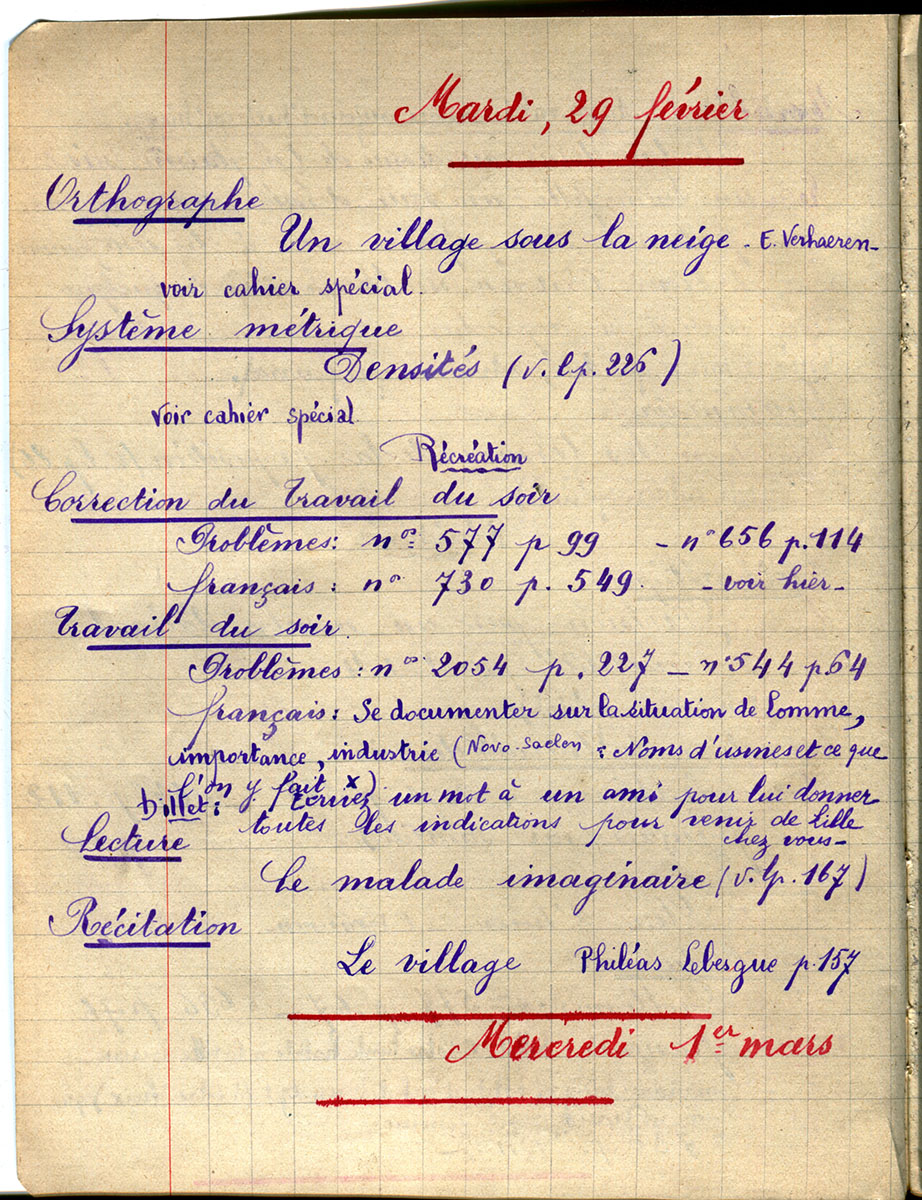 Mardi, 29 février
Orthographe
Un village sous la neige - E. Verhaeren -
voir cahier spécial.
Système métrique
Densités (v. lp. 226)
voir cahier spécial
Récréation
Correction du travail du soir
Problèmes: nos 577 p 99 - n° 656 p. 114
français: n° 730 p. 549. - voir hier -
Travail du soir.
Problèmes: nos 2054 p. 227 - n° 544 p 64
français: Se documenter sur la situation de Lomme,
importance, industrie (Novo-Saelen : Noms d'usines et ce que
l'on y fait x)
billet: Ecrivez un mot à un ami pour lui donner
toutes les indications pour venir de Lille
chez vous -
Lecture
Le malade imaginaire (v. lp. 167)
Récitation
Le village Philéas Lebesgue p. 157
Mercredi 1er mars